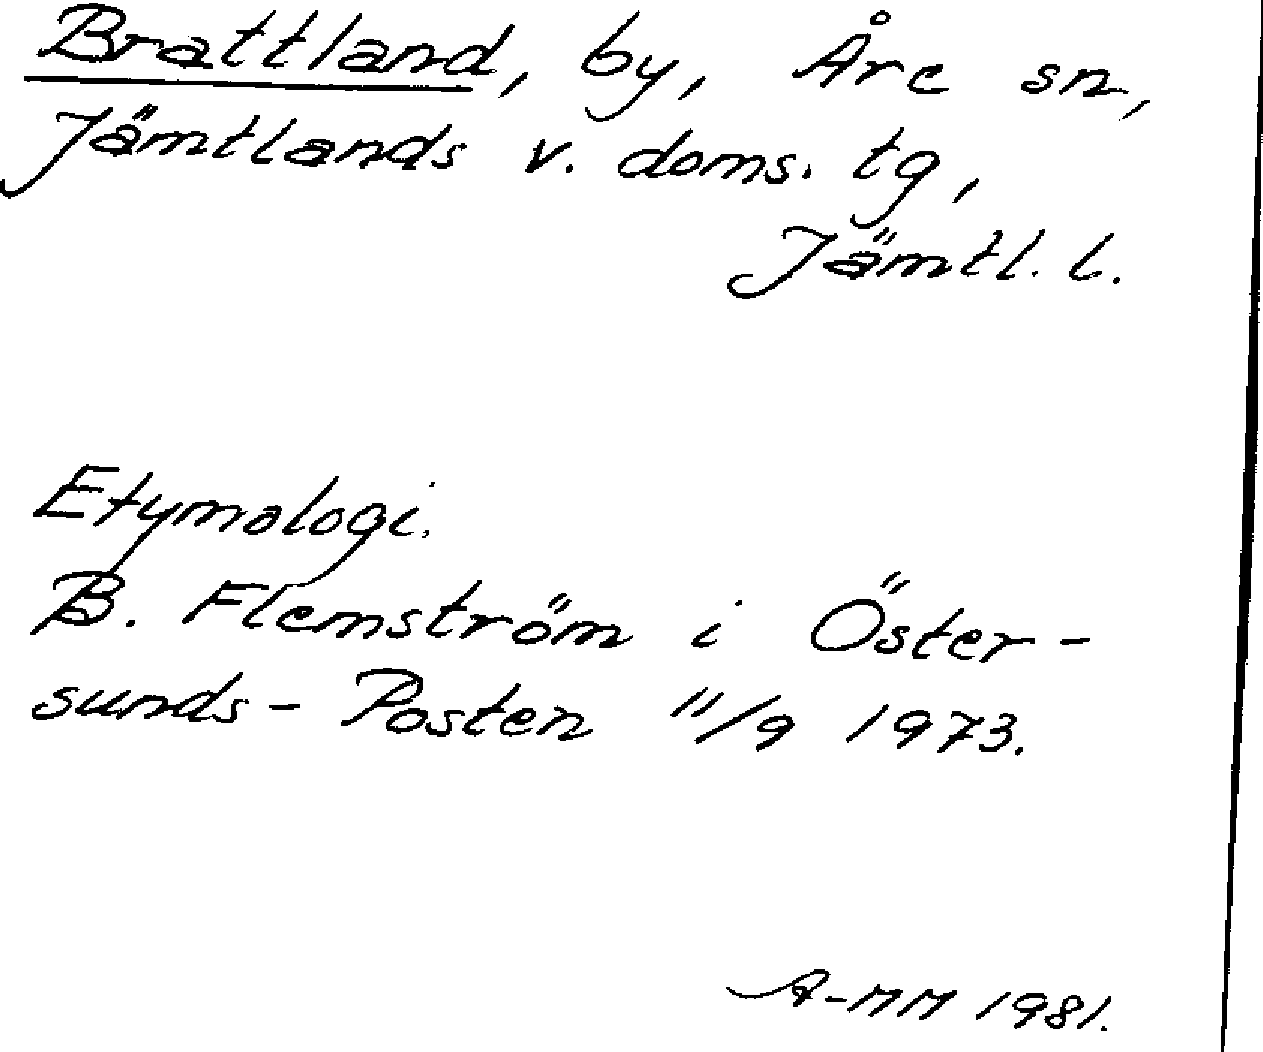 Brattland, by, Åre sn,
Jämtlands v. doms. tg,
Jämtl. l.
Etymologi.
B. Flemström i Öster-
sunds-Posten 11/9 1973.
A-MM 1981.